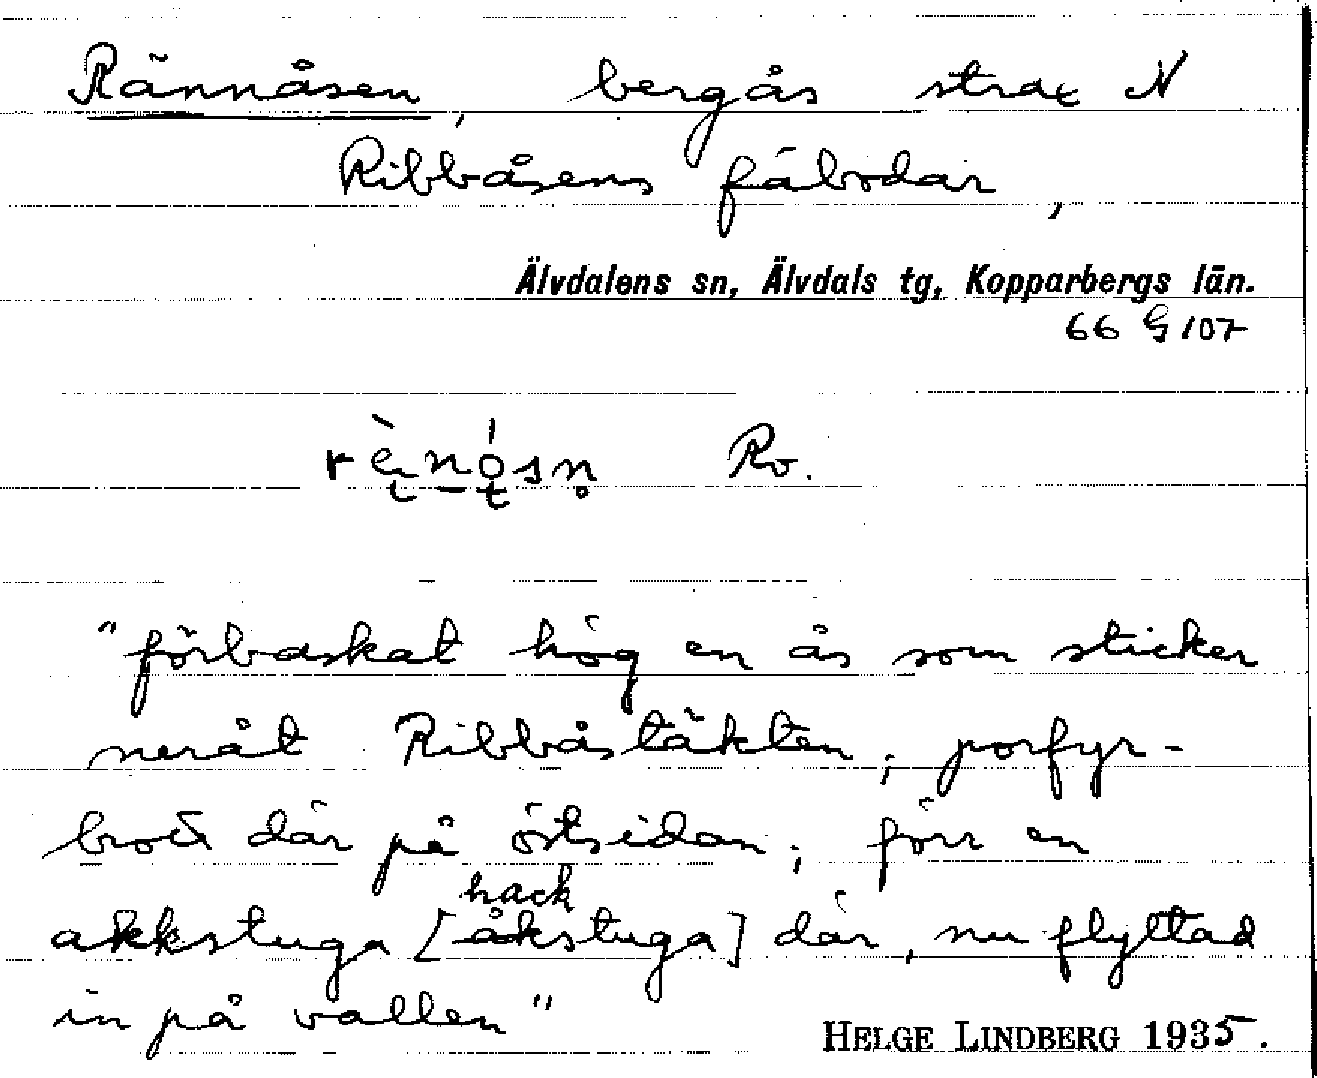 Rännåsen, bergås strax N
Ribbåsens fäbodar,
Älvdalens sn, Älvdals tg, Kopparbergs län.
66 G 107
Ro.
"förbaskat hög en ås som sticker
neråt Ribbåstäkten; porfyr-
brott där på östsidan; förr en
hack
akkstuga [åkstuga] där, nu flyttad
in på vallen"
HELGE LINDBERG 1935.